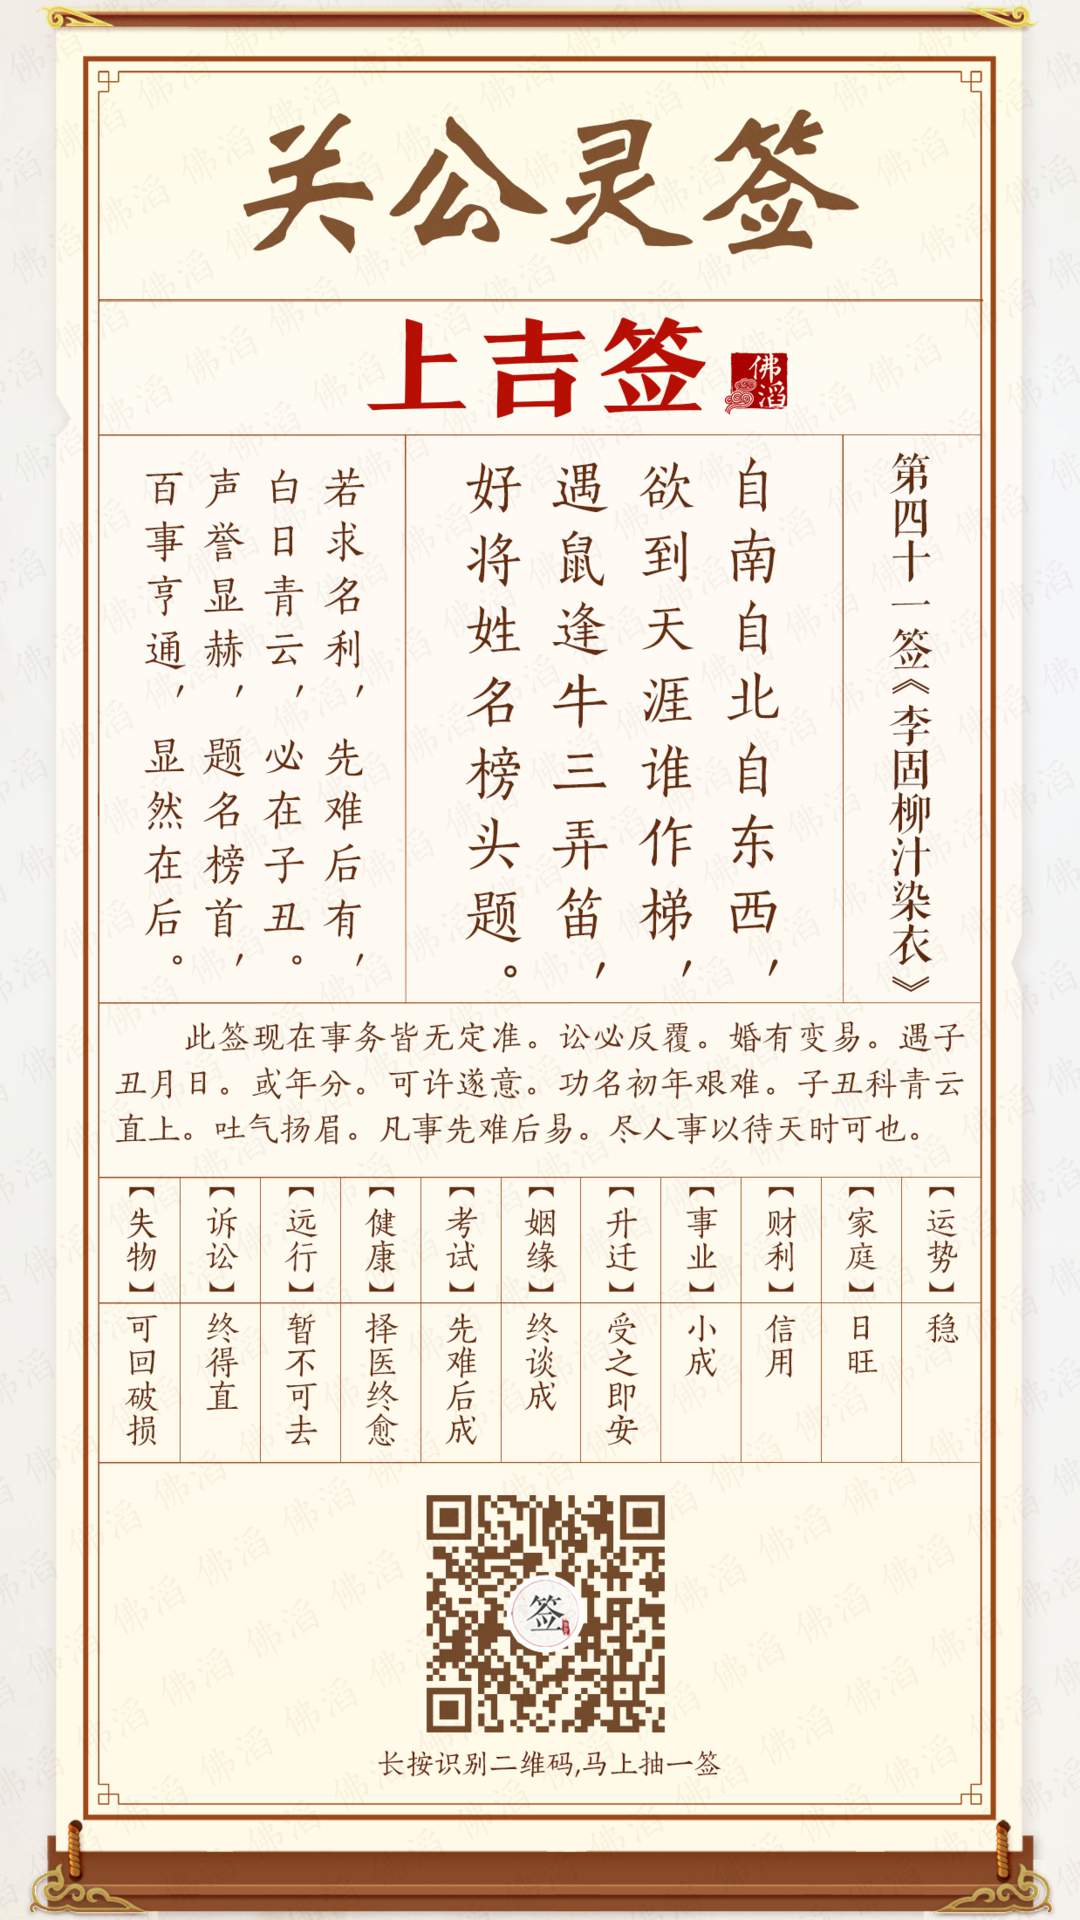 关公灵签
上吉签
佛滔
第四十一签《李固柳汁染衣》
自南自北自东西，
欲到天涯谁作梯，
遇鼠逢牛三弄笛，
好将姓名榜头题。
若求名利，先难后有，
白日青云，必在子丑。
声誉显赫，题名榜首，
百事亨通，显然在后。
此签现在事务皆无定准。讼必反覆。婚有变易。遇子
丑月日。或年分。可许遂意。功名初年艰难。子丑科青云
直上。吐气扬眉。凡事先难后易。尽人事以待天时可也。
【运势】
稳
【家庭】
日旺
【财利】
信用
【事业】
小成
【升迁】
受之即安
【姻缘】
终谈成
【考试】
先难后成
【健康】
择医终愈
【远行】
暂不可去
【诉讼】
终得直
【失物】
可回破损
签
长按识别二维码,马上抽一签